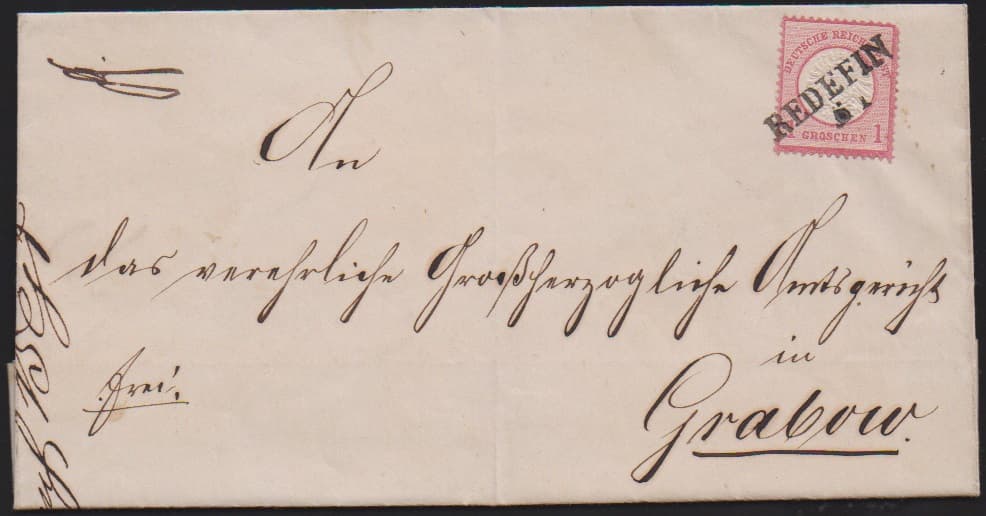 DEUTSCHE REICHS-POST
1 GROSCHEN 1
REDEFIN
5 1
An
das verehrliche Großherzogliche Amtsgericht
in
frei.
Grabow.